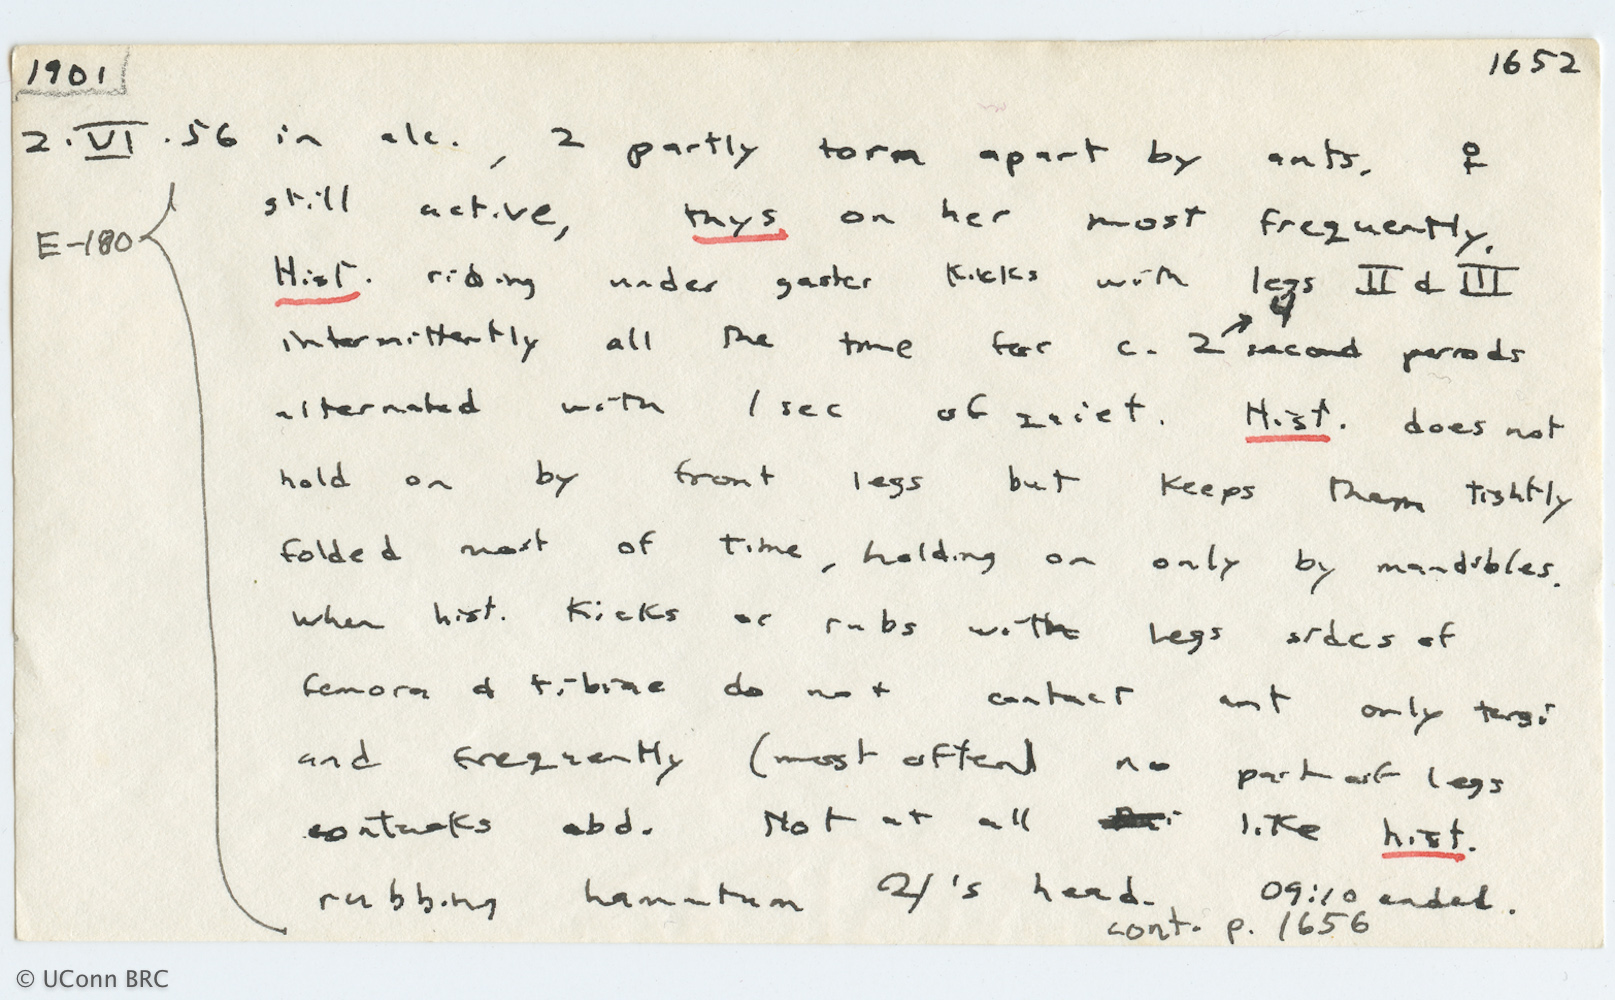 1901
1652
2.VI.56 in alc., 2 partly torn apart by ants. ♀
E-180
still active, thys on her most frequently.
Hist. riding under gaster kicks with legs II & III
4
intermittently all the time for c. 2 second periods
alternated with 1 sec of quiet. Hist. does not
hold on by front legs but keeps them tightly
folded most of time, holding on only by mandibles.
When hist. kicks or rubs with legs sides of
femora & tibiae do not contact ant only tarsi
and frequently (most often) no part of legs
contacts abd. Not at all like hist.
rubbing hamatum 's head. 09:10 ended.
cont. p. 1656
© UConn BRC